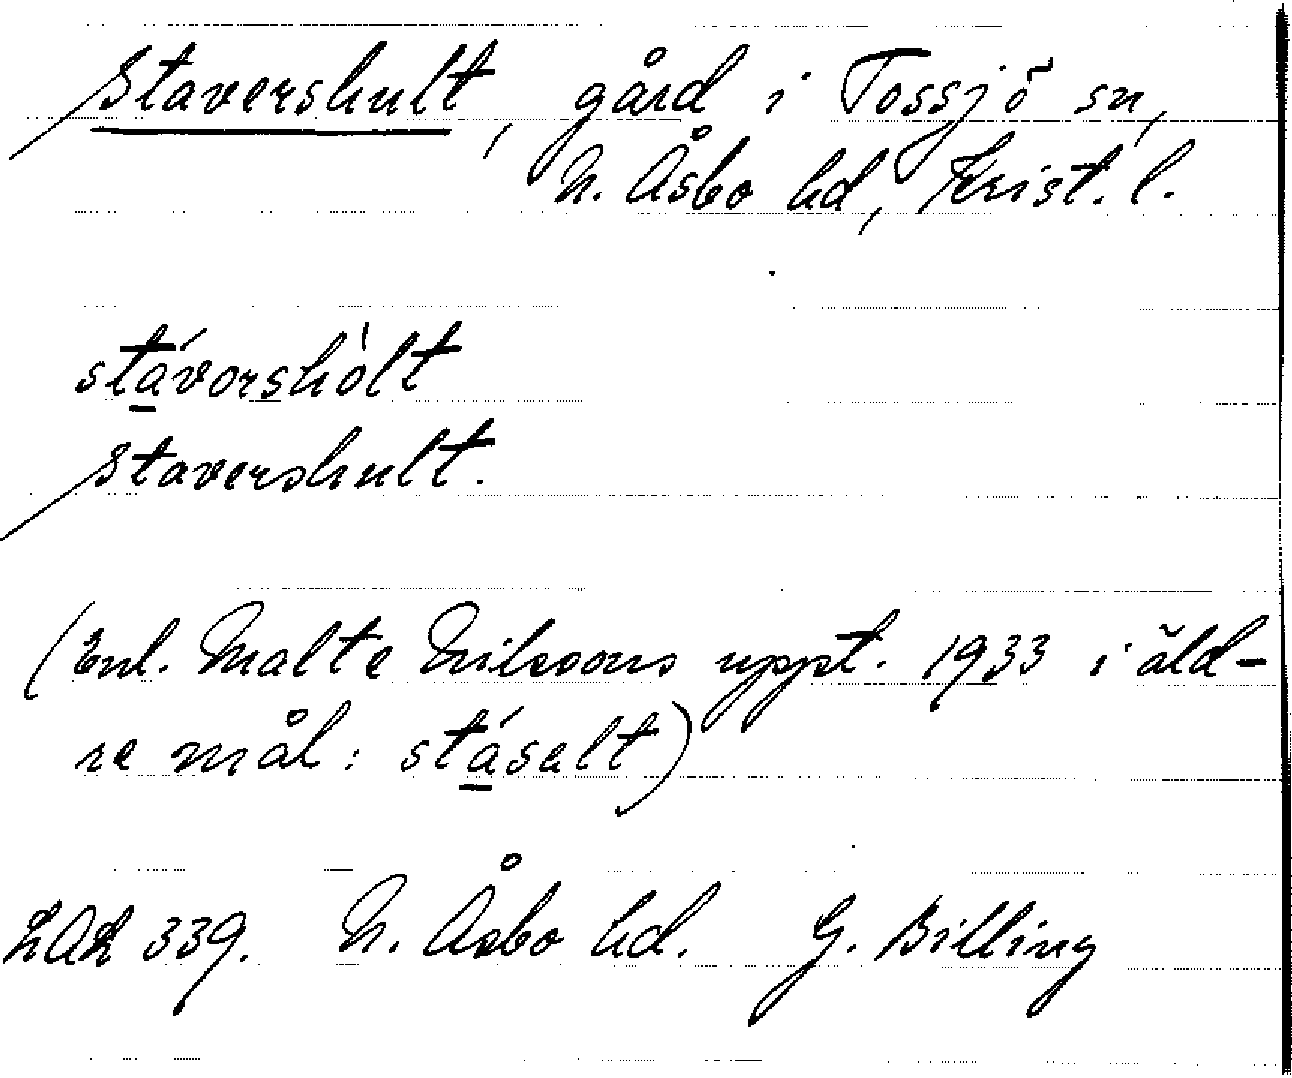 Stavershult, gård i Tossjö sn,
N. Åsbo hd, Krist. l.
stávorshòlt
Stavershult.
(Enl. Malte Nilssons uppt. 1933 i äld-
re mål: stáselt)
LAL 339. N. Åsbo hd. G. Billing